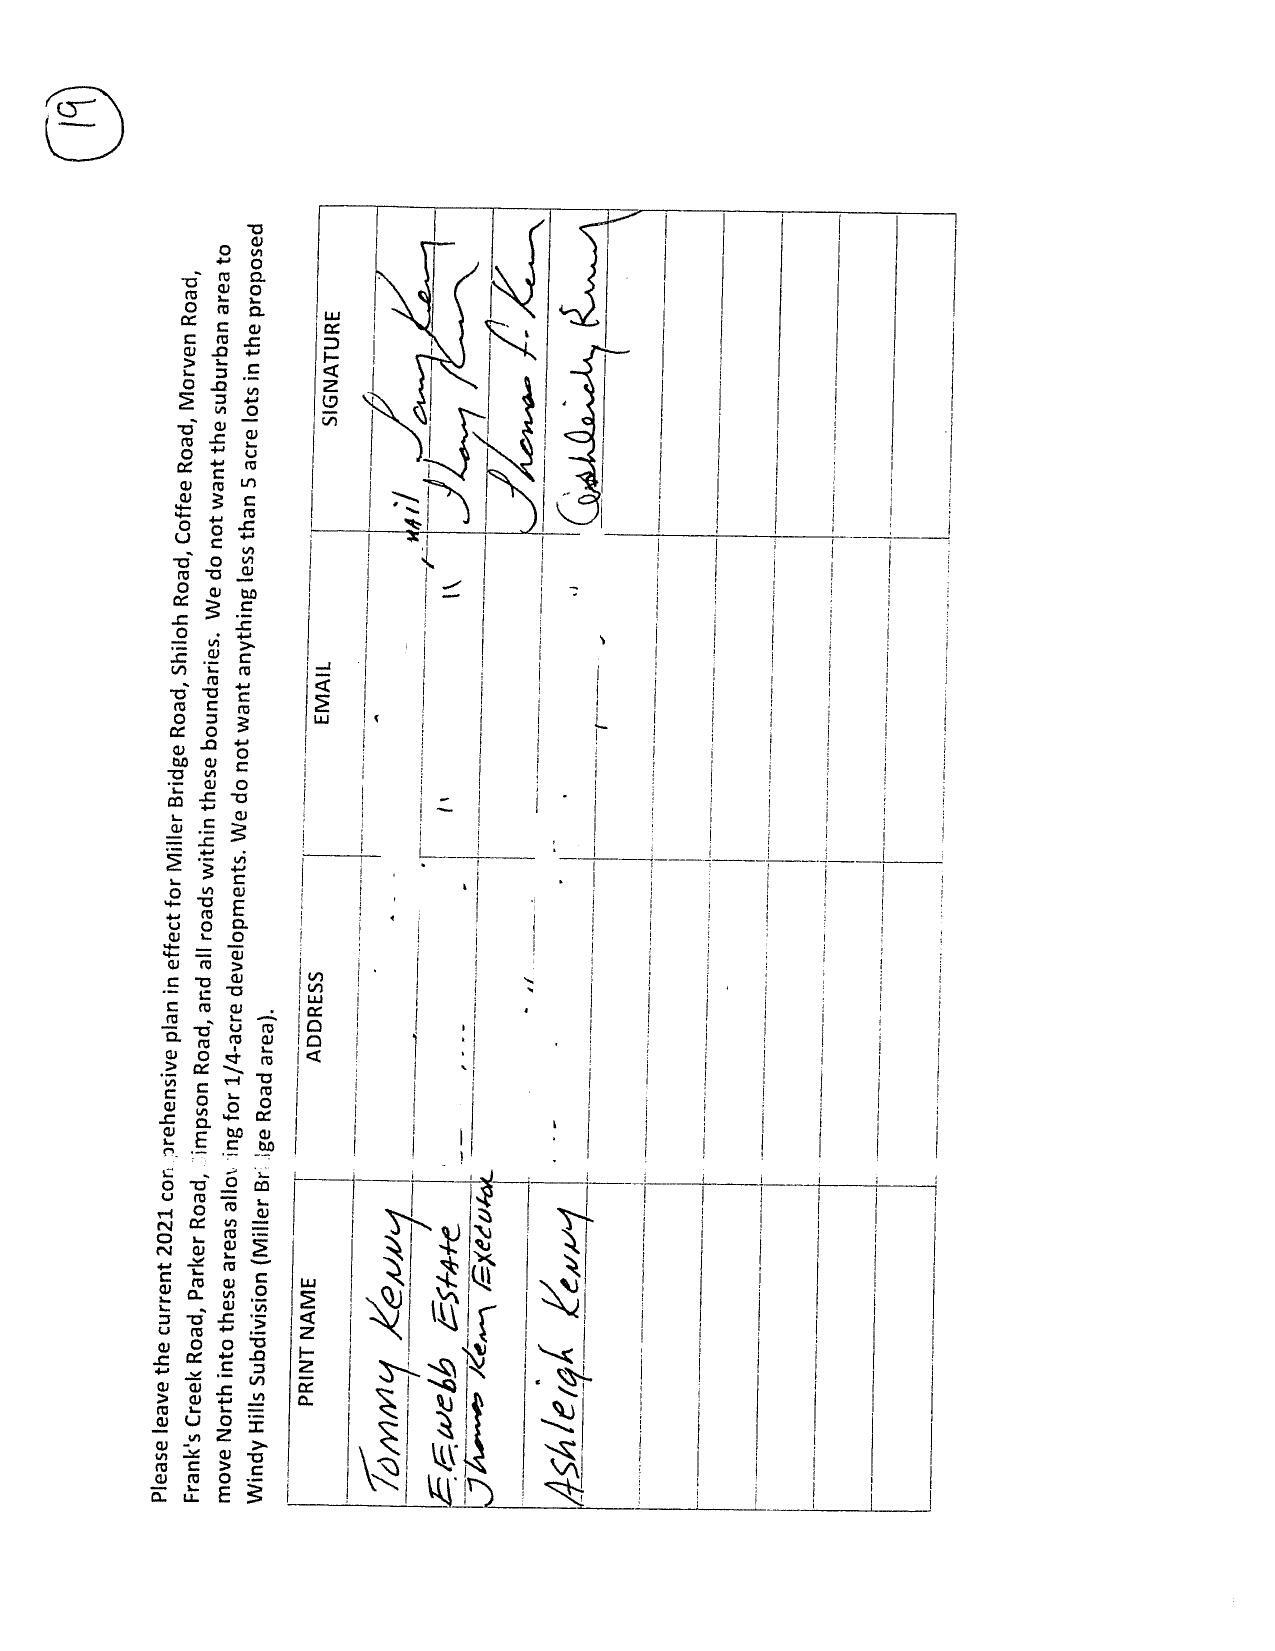 19
Please leave the current 2021 comprehensive plan in effect for Miller Bridge Road, Shiloh Road, Coffee Road, Morven Road,
Frank's Creek Road, Parker Road, Simpson Road, and all roads within these boundaries. We do not want the suburban area to
move North into these areas allowing for 1/4-acre developments. We do not want anything less than 5 acre lots in the proposed
Windy Hills Subdivision (Miller Bridge Road area).
PRINT NAME ADDRESS EMAIL SIGNATURE
TOMMY KENNY Tommy Kenny
E.E. Webb ESTATE " " Thomas Kenny
Thomas Kenny Executor " Thomas F. Kenny
Ashleigh Kenny " Ashleigh Kenny